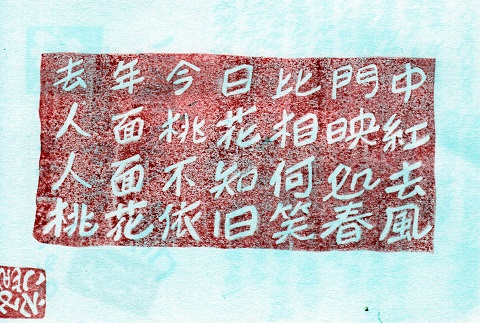 去年今日比門中
人面桃花相映紅
人面不知何処去
桃花依旧笑春風